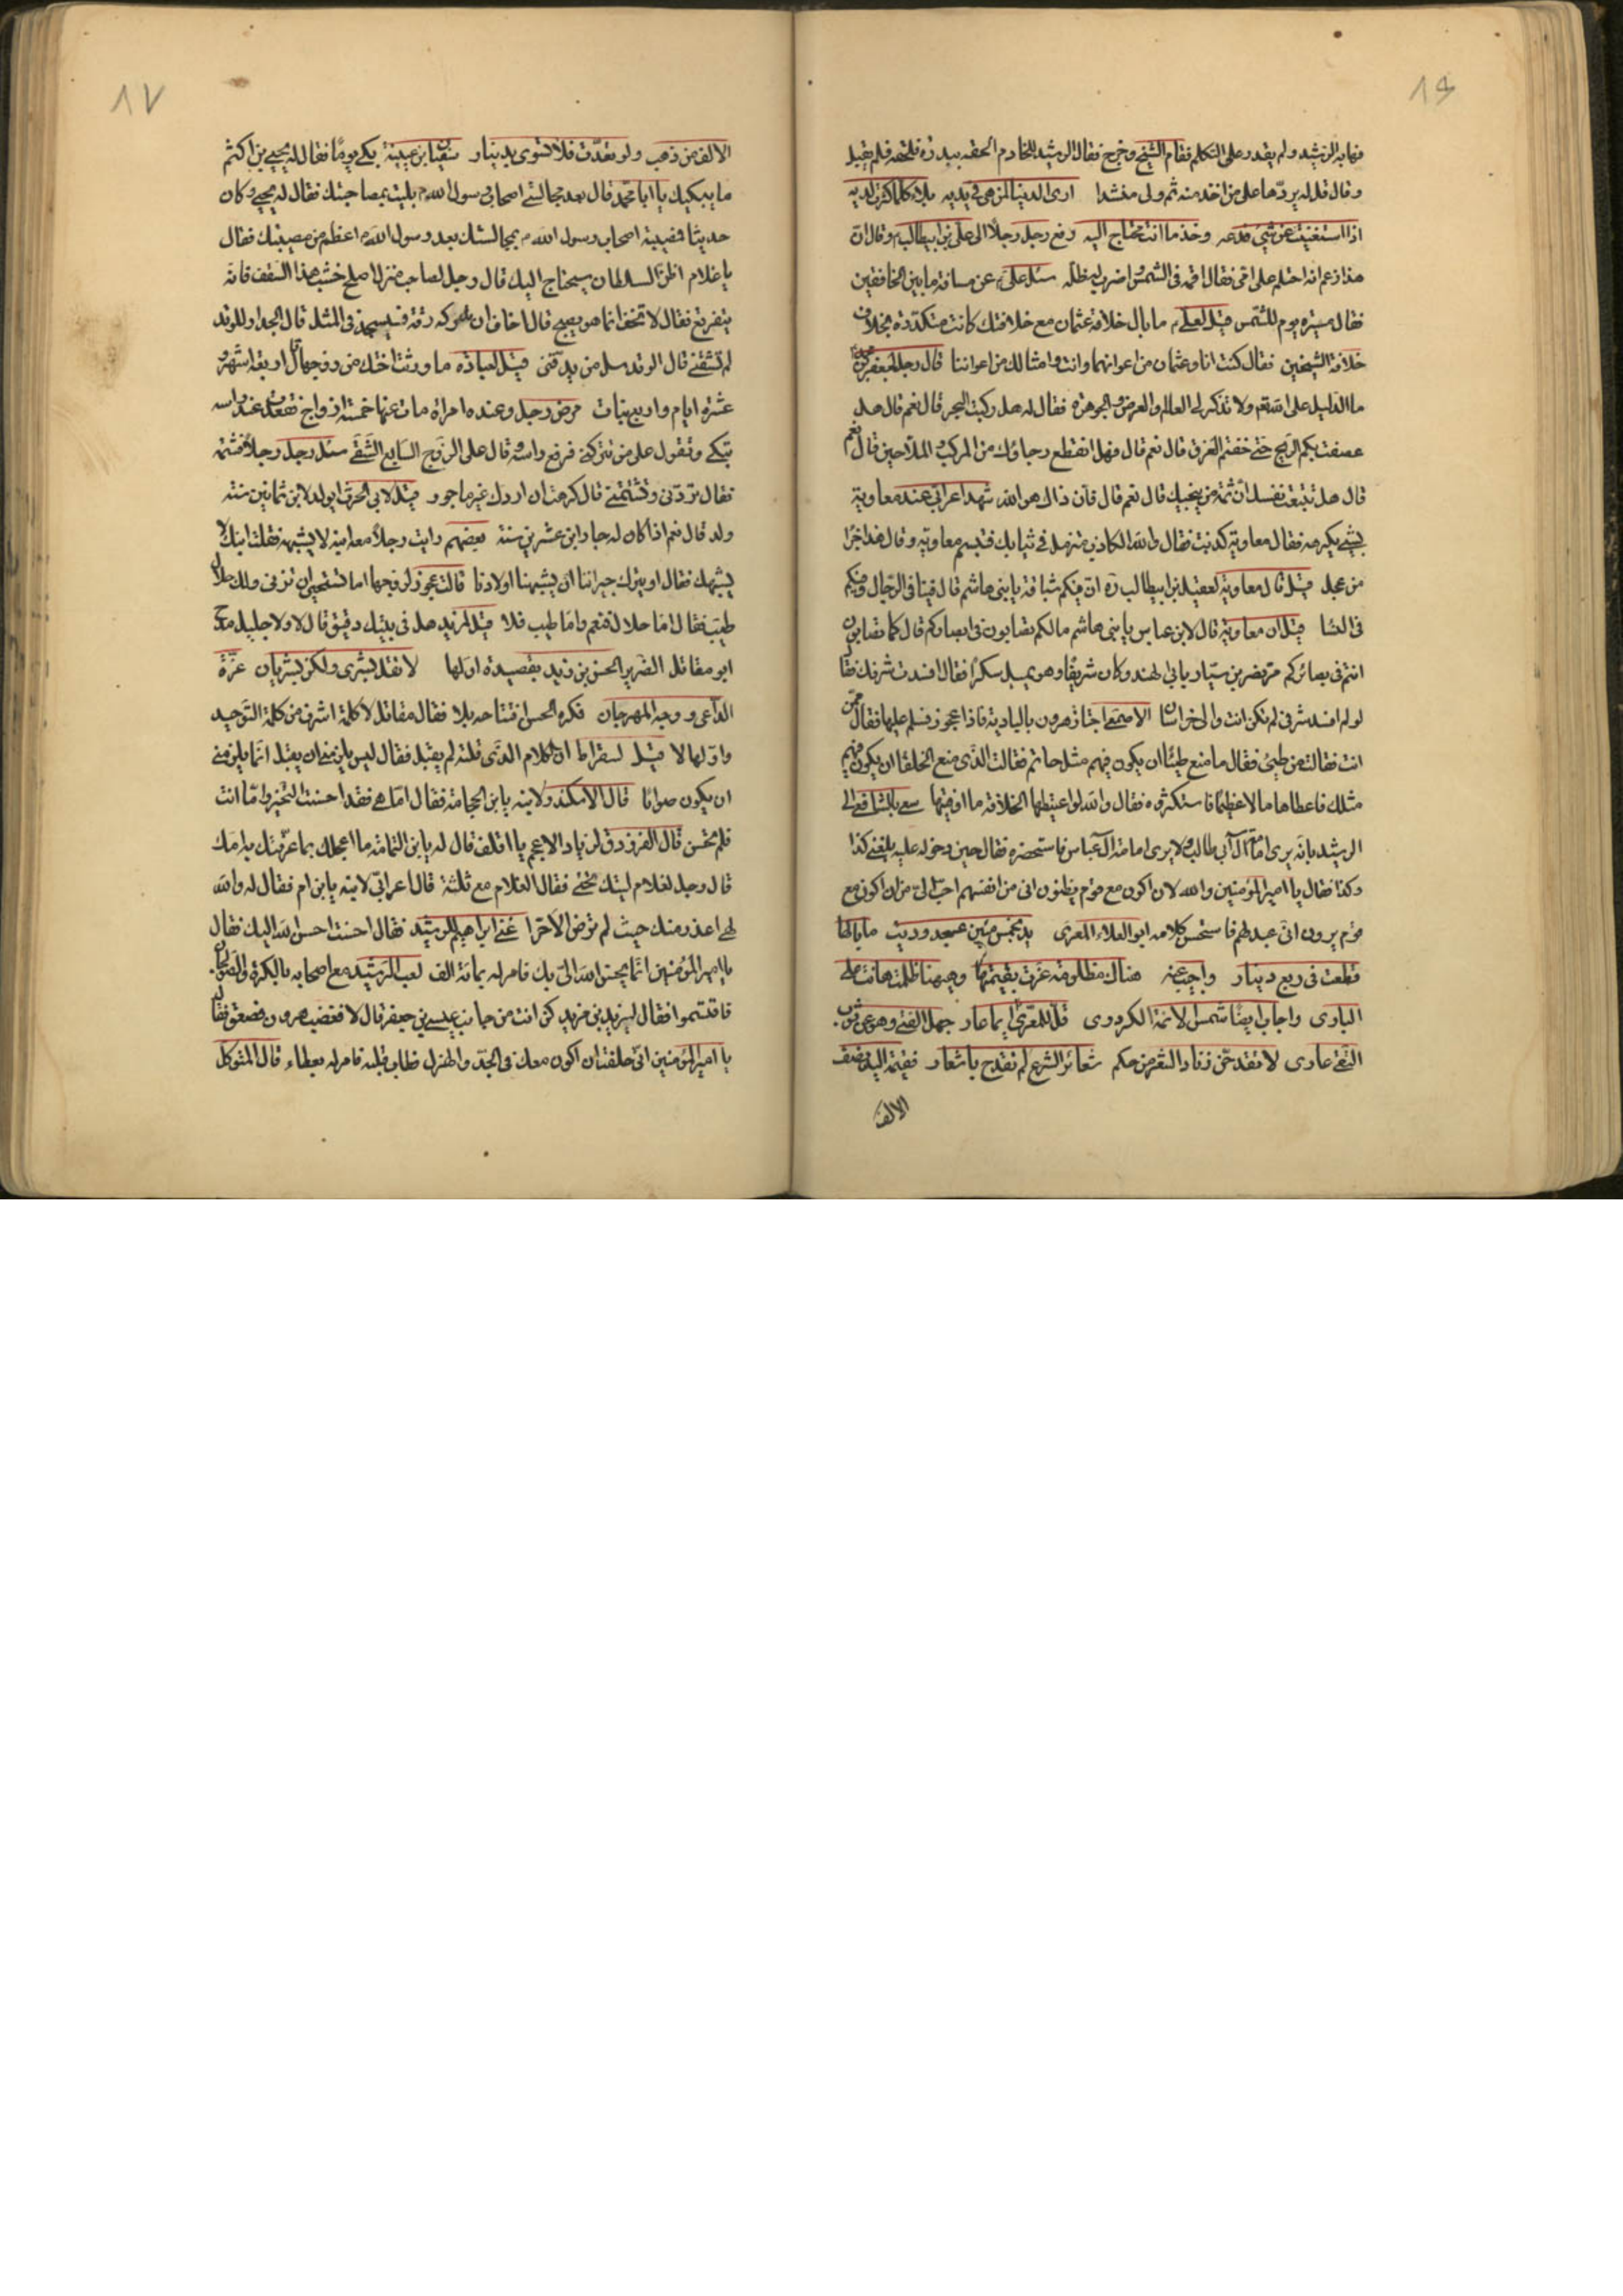 فهابه الرشيد ولم يقدر على التكلم فقام الشيخ وخرج فقال الرشيد للخادم الحقه ببدرة فلحقه فلم يقبل
وقال قل له يردها على من اخذ منه ثم ولى منشدا ارى الدنيا لمن هي في يديه بلاء كلما كثرت لديه
اذا استغنيت عن شيء فدعه وخذ ما انت تحتاج اليه رفع رجل رجلا الى علي بن ابيطالب وقال ان
هذا زعم انه احتلم على امي فقال اقمه في الشمس اضرب ظله سئل علي عن مسافة ما بين الخافقين
فقال مسيرة يوم للشمس قيل لعلي ما بال خلافة عثمان مع خلافتك كانت متكدرة بخلاف
خلافة الشيخين فقال كنت انا وعثمان من اعوانهما وانت وامثالك من اعواننا قال رجل لجعفر
ما الدليل على الله ولا تذكر لي العالم والعرض والجوهر فقال له هل ركبت البحر قال نعم قال هل
عصفت بكم الريح حتى خفتم الغرق قال نعم قال فهل انقطع رجاؤك من المركب والملاحين قال نعم
قال هل تتبعت نفسك ان ثمة من ينجيك قال نعم قال فان ذاك هو الله شهد اعرابي عند معاوية
بشيء يكرهه فقال معاوية كذبت فقال والله الكاذب متزمل في ثيابك فتبسم معاوية وقال هذا جزا
من عجل قيل قال معاوية لعقيل بن ابيطالب ان فيكم شباقة يا بني هاشم قال فينا في الرجال وفيكم
في النسا قيل ان معاوية قال لابن عباس يا بني هاشم ما لكم تصابون في ابصاركم قال كما تصابون
انتم في بصائركم مر نصر بن سيار بابي الهند وكان شريفا وهو يميل سكرا فقال افسدت شرفك فقال
لو لم افسد شرفي لم تكن انت والي خراسان الاصمعي اجتاز هرون بالبادية فاذا عجوز فسلم عليها فقال ممن
انت فقالت من طيئ فقال ما منع طيئا ان يكون فيهم مثل حاتم فقالت الذي منع الخلفا ان يكون فيهم
مثلك فاعطاها مالا عظيما فاستكثروه فقال والله لو اعطيتها الخلافة ما اوفيتها سعي بالشافعي الى
الرشيد بانه يرى امامة آل ابي طالب ولا يرى امامة آل عباس فاستحضره فقال حين دخوله عليه بلغني كذا
وكذا فقال يا امير المؤمنين والله لان اكون مع قوم يظنون اني من انفسهم احب الي من ان اكون مع
قوم يرون اني عبد لهم فاستحسن كلامه ابو العلاء المعري يد بخمس مئين عسجد وديت ما بالها
قطعت في ربع دينار واجيب عنه هناك مظلومة غزت بقيمتها وههنا ظلمت هانت على
الباري واجاب ايضا شمس الائمة الكردري قل للمعري ايما عار جهل الفتى وهو عن ثوب
التقى عاري لا تقدحن زناد الشعر من حكم شعائر الشرع لم تقدح باشعار فقيمة اليد نصف
الالف
الالف من ذهب ولو تعدت فلا تسوى بدينار سفيان بن عيينة بكى يوما فقال له يحيى بن اكثم
ما يبكيك يا ابا محمد قال بعد مجالستي اصحاب رسول الله بليت بمصاحبتك فقال له يحيى وكان
حديثا فمصيبة اصحاب رسول الله بمجالستك بعد رسول الله اعظم من مصيبتك فقال
يا غلام اظن السلطان سيحتاج اليك قال رجل لصاحب منزل اصلح خشب هذا السقف فانه
يتفرقع فقال لا تخف انما هو يسبح قال اخاف ان تدركه رقة فيسجد في المثل قال الجدار للوتد
لم تشقني قال الوتد سل من يدقني قيل لعبادة ما ورثت اختك من زوجها قال اربعة اشهر و
عشرة ايام مرض رجل وعنده امراة مات عنها خمسة ازواج فقعدت عند راسه
تبكي وتقول على من تتركني فرفع راسه قال على الزوج السابع الشقي سئل رجل رجلا فشتمه
فقال تردني وتشتمني قال كرهت ان اردك غير ماجور قيل لابي الحرث ايولد لابن ثمانين سنة
ولد قال نعم اذا كان له جار ابن عشرين سنة بعضهم رايت رجلا معه ابنه لا يشبهه فقلت ابنك لا
يشبهك فقال او يترك جيراننا ان يشبهنا اولادنا قالت عجوز لزوجها اما تستحيي ان تزني ولك حلال
طيب فقال اما حلال فنعم واما طيب فلا قيل لمزيد هل في بيتك دقيق قال لا ولا جليل مدح
ابو مقاتل الضرير الحسن بن زيد بقصيدة اولها لا تقل بشرى ولكن بشريان غرة
الداعي ووجه المهرجان فكره الحسن افتتاحه بلا فقال مقاتل لا كلمة اشرف من كلمة التوحيد
واولها لا قيل لسقراط ان الكلام الذي قلته لم يقبل فقال ليس يلزمني ان يقبل انما يلزمني
ان يكون صوابا قال الاسكندر لابنه يا بن الحجامة فقال اما هي فقد احسنت التخير واما انت
فلم تحسن قال الفرزدق لزياد الاعجم يا اقلف قال له يا بن النمامة ما اعجلك بما عرفتك به امك
قال رجل لغلام ليتك تحتي فقال الغلام مع ثلثة قال اعرابي لابنه يا بن ام فقال له والله
لهي اعذر منك حيث لم ترض الا حرا غنى ابراهيم للرشيد فقال احسنت احسن الله اليك فقال
يا امير المؤمنين انما يحسن الله الي بك فامر له بمائة الف لعب الرشيد مع اصحابه بالكرة والصولجان
فاقتسموا فقال ليزيد بن مزيد كن انت من جانب عيسى بن جعفر قال لا فغضب هرون فقال
يا امير المؤمنين اني حلفت ان اكون معك في الجد والهزل فطاب قلبه فامر له بعطاء قال المتوكل